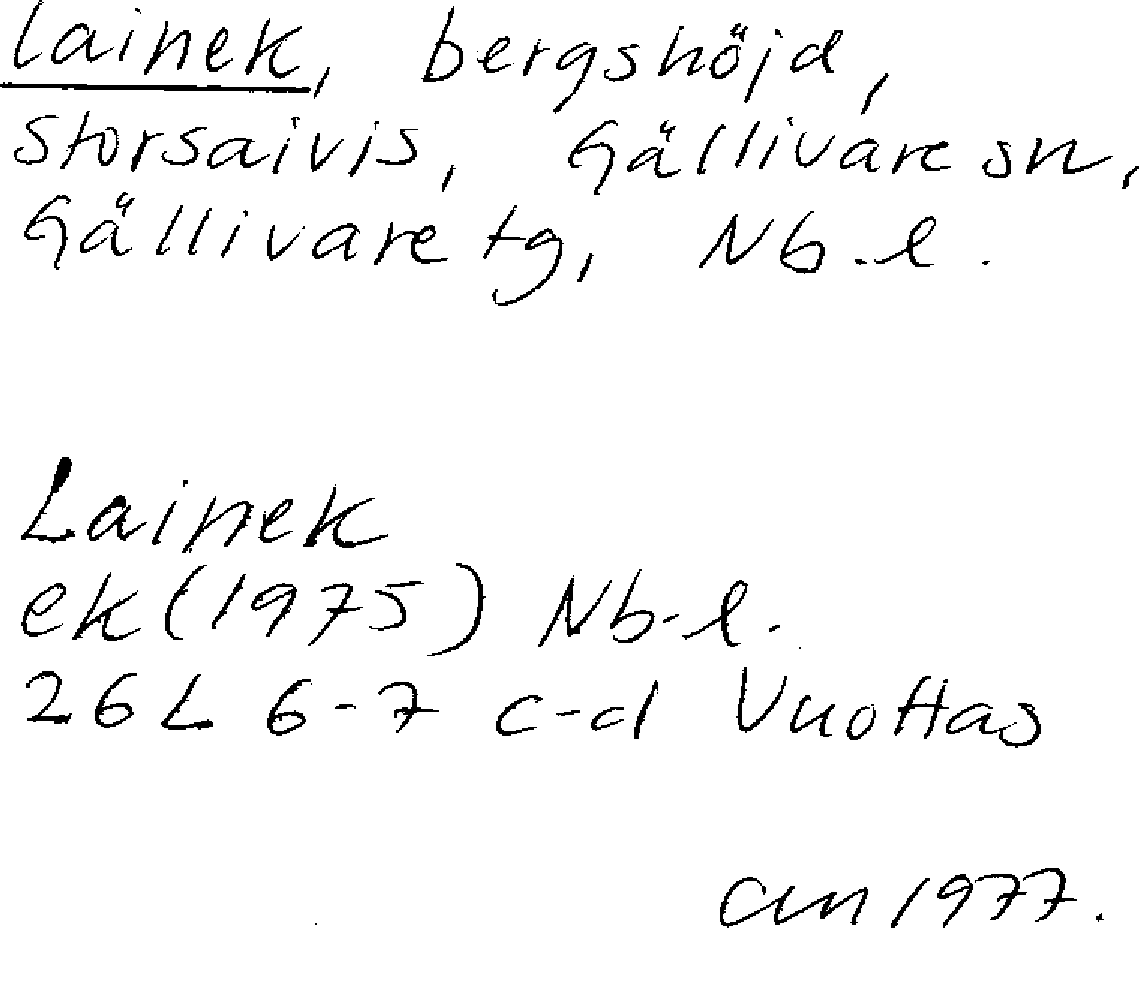 Lainek, bergshöjd,
Storsaivis, Gällivare sn,
Gällivare tg, Nb.l.
Lainek
ek (1975) Nb.l.
26L 6-7 c-d Vuottas
1977.